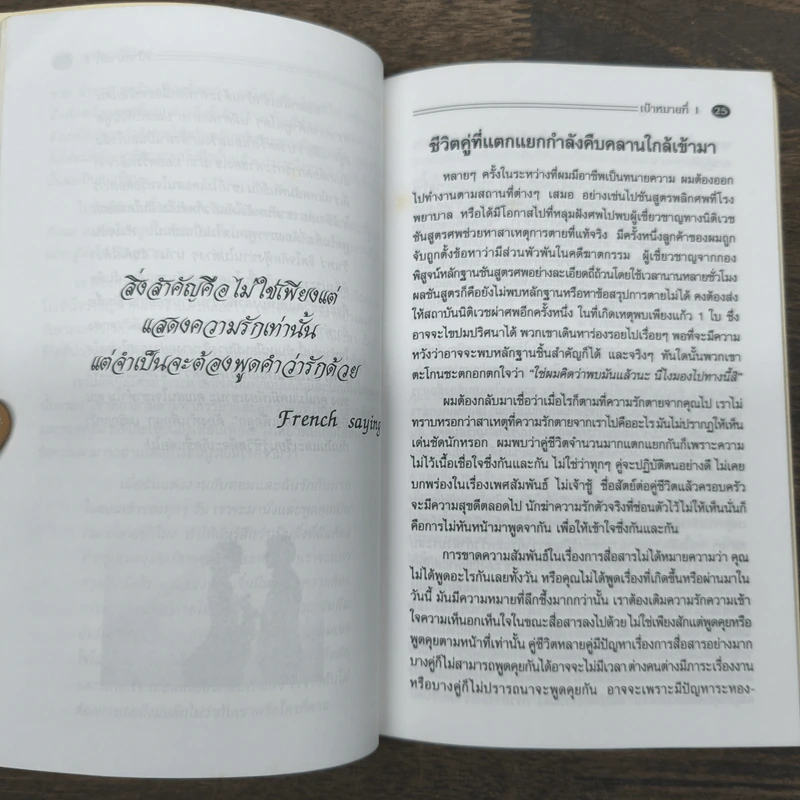 สิ่งสำคัญคือไม่ใช่เพียงแต่
แสดงความรักเท่านั้น
แต่จำเป็นจะต้องพูดคำว่ารักด้วย
French saying
เป้าหมายที่ 1 25
ชีวิตคู่ที่แตกแยกกำลังคืบคลานใกล้เข้ามา
หลายๆ ครั้งในระหว่างที่ผมมีอาชีพเป็นทนายความ ผมต้องออก
ไปทำงานตามสถานที่ต่างๆ เสมอ อย่างเช่นไปชันสูตรพลิกศพที่โรง
พยาบาล หรือได้มีโอกาสไปที่หลุมฝังศพไปพบผู้เชี่ยวชาญทางนิติเวช
ชันสูตรศพช่วยหาสาเหตุการตายที่แท้จริง มีครั้งหนึ่งลูกค้าของผมถูก
จับถูกตั้งข้อหาว่ามีส่วนพัวพันในคดีฆาตกรรม ผู้เชี่ยวชาญจากกอง
พิสูจน์หลักฐานชันสูตรศพอย่างละเอียดถี่ถ้วนโดยใช้เวลานานหลายชั่วโมง
ผลชันสูตรก็คือยังไม่พบหลักฐานหรือหาข้อสรุปการตายไม่ได้ คงต้องส่ง
ให้สถาบันนิติเวชผ่าศพอีกครั้งหนึ่ง ในที่เกิดเหตุพบเพียงแก้ว 1 ใบ ซึ่ง
อาจจะไขปมปริศนาได้ พวกเขาเดินหาร่องรอยไปเรื่อยๆ พอที่จะมีความ
หวังว่าอาจจะพบหลักฐานชิ้นสำคัญก็ได้ และจริงๆ ทันใดนั้นพวกเขา
ตะโกนซะตกอกตกใจว่า "ใช่ผมคิดว่าพบมันแล้วนะ นี่ไงมองไปทางนี้สิ"
ผมต้องกลับมาเชื่อว่าเมื่อไรก็ตามที่ความรักตายจากคุณไป เราไม่
ทราบหรอกว่าสาเหตุที่ความรักตายจากเราไปคืออะไร มันไม่ปรากฏให้เห็น
เด่นชัดนักหรอก ผมพบว่าคู่ชีวิตจำนวนมากแตกแยกกันก็เพราะความ
ไม่ไว้เนื้อเชื่อใจซึ่งกันและกัน ไม่ใช่ว่าทุกๆ คู่จะปฏิบัติตนอย่างดี ไม่เคย
บกพร่องในเรื่องเพศสัมพันธ์ ไม่เจ้าชู้ ซื่อสัตย์ต่อคู่ชีวิตแล้วครอบครัว
จะมีความสุขดีตลอดไป นักฆ่าความรักตัวจริงที่ซ่อนตัวไว้ไม่ให้เห็นนั่นก็
คือการไม่หันหน้ามาพูดจากัน เพื่อให้เข้าใจซึ่งกันและกัน
การขาดความสัมพันธ์ในเรื่องการสื่อสารไม่ได้หมายความว่า คุณ
ไม่ได้พูดอะไรกันเลยทั้งวัน หรือคุณไม่ได้พูดเรื่องที่เกิดขึ้นหรือผ่านมาใน
วันนี้ มันมีความหมายที่ลึกซึ้งมากกว่านั้น เราต้องเติมความรักความเข้า
ใจความเห็นอกเห็นใจในขณะสื่อสารลงไปด้วย ไม่ใช่เพียงสักแต่พูดคุยหรือ
พูดคุยตามหน้าที่เท่านั้น คู่ชีวิตหลายคู่มีปัญหาเรื่องการสื่อสารอย่างมาก
บางคู่ก็ไม่สามารถพูดคุยกันได้อาจจะไม่มีเวลา ต่างคนต่างมีภาระเรื่องงาน
หรือบางคู่ก็ไม่ปรารถนาจะพูดคุยกัน อาจจะเพราะมีปัญหาระหอง-